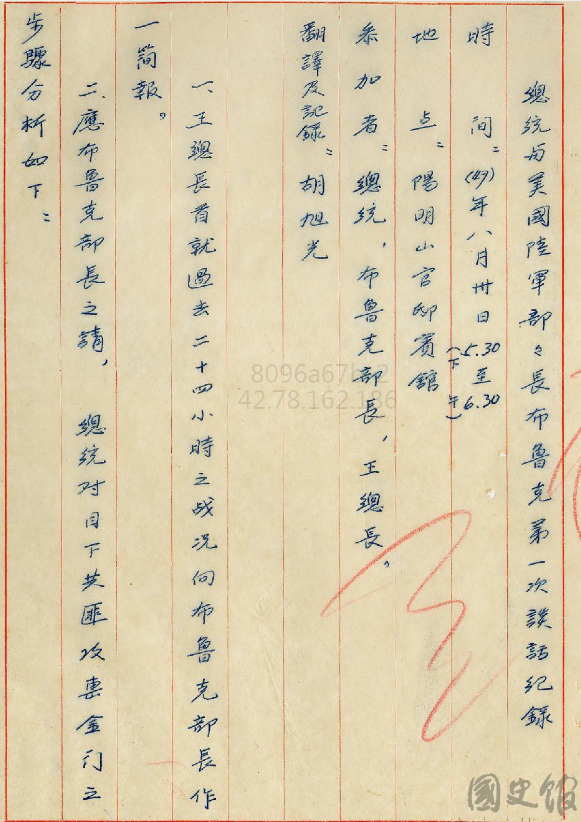 總統与美國陸軍部々長布魯克第一次談話紀錄
時 間：(47)年八月卅日5.30至6.30(下午)
地 点：陽明山官邸賓館
参加者：總統，布魯克部長，王總長。
翻譯及記錄：胡旭光
一、王總長首就過去二十四小時之战况向布魯克部長作
一簡報。
二、應布魯克部長之請，總統对目下共匪攻擊金门之
步驟分析如下：
42.78.162.186
國史館